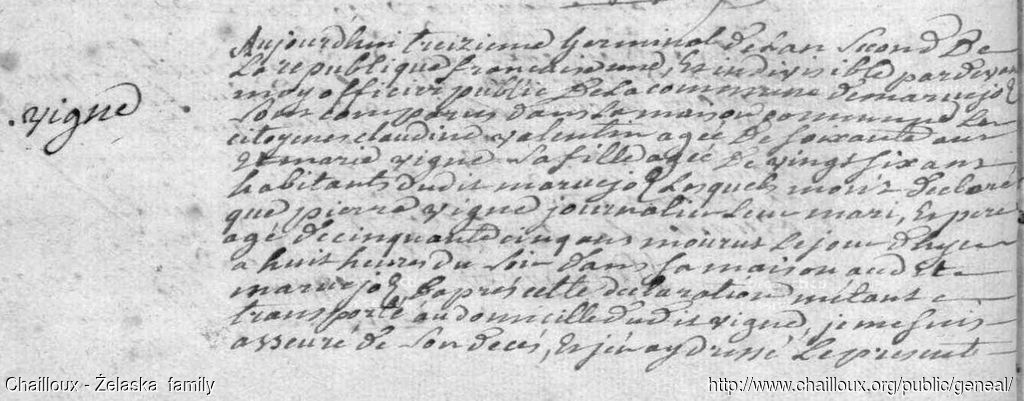 Aujourdhui treizieme Germinal de Lan Second De
La republique francaise une, Et indivisible pardevan
moy officier public De La commune de maruejolz
Sont comparus dans La maison commune Les
.vigne
citoyenes claudine valentin agée De soixante ans
Et marie vigne sa fille agée De vingt six ans
habitants dudit maruejolz Lesquels mont declaré
que pierre vigne journalier Leur mari, Et pere
agé de cinquante cinq ans mourut Le jour d'hyer
a huit heures du soir dans sa maison audit
maruejolz Dapres cette declaration métant
transporté au domicille dudit vigne, je me suis
asseuré de Son decés, Et j'en ay dressé Le present
Chailloux - Żelaska family
http://www.chailloux.org/public/geneal/